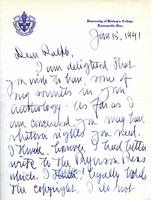 University of Bishop's College
Lennoxville, Que.
Jan 15, 1941
Dear Ralph,
I am delighted that
you wish to have some of
my sonnets in your
anthology. As far as I
am concerned, you may have
whatever rights you need.
I think however I had better
write to the Ryerson Press
which I think legally holds
the copyright. I do not